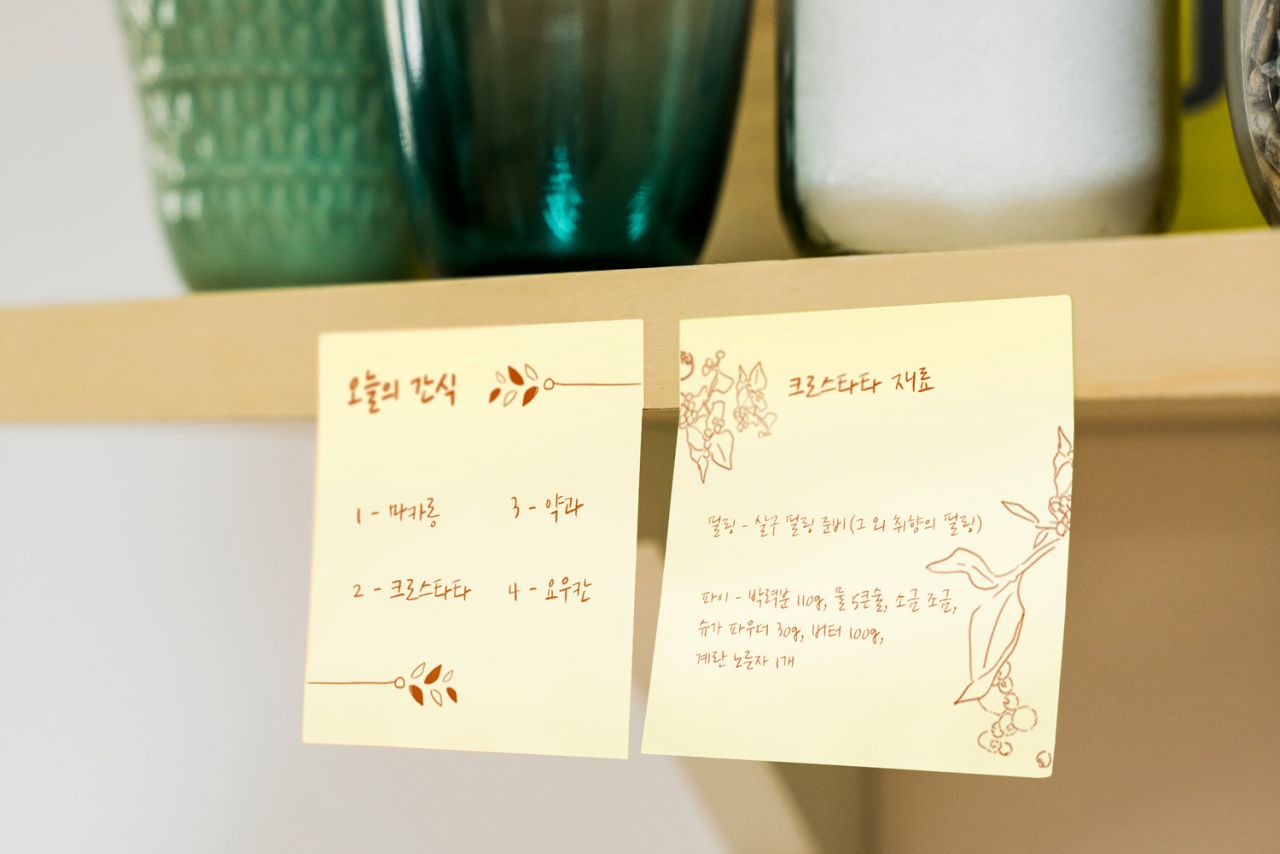 오늘의 간식
1 - 마카롱
2 - 크로스타타
3 - 약과
4 - 요우칸
크로스타타 재료
필링 - 살구 필링 준비 (그 외 취향의 필링)
파이 - 박력분 110g, 물 5큰술, 소금 조금,
슈가 파우더 30g, 버터 100g,
계란 노른자 1개